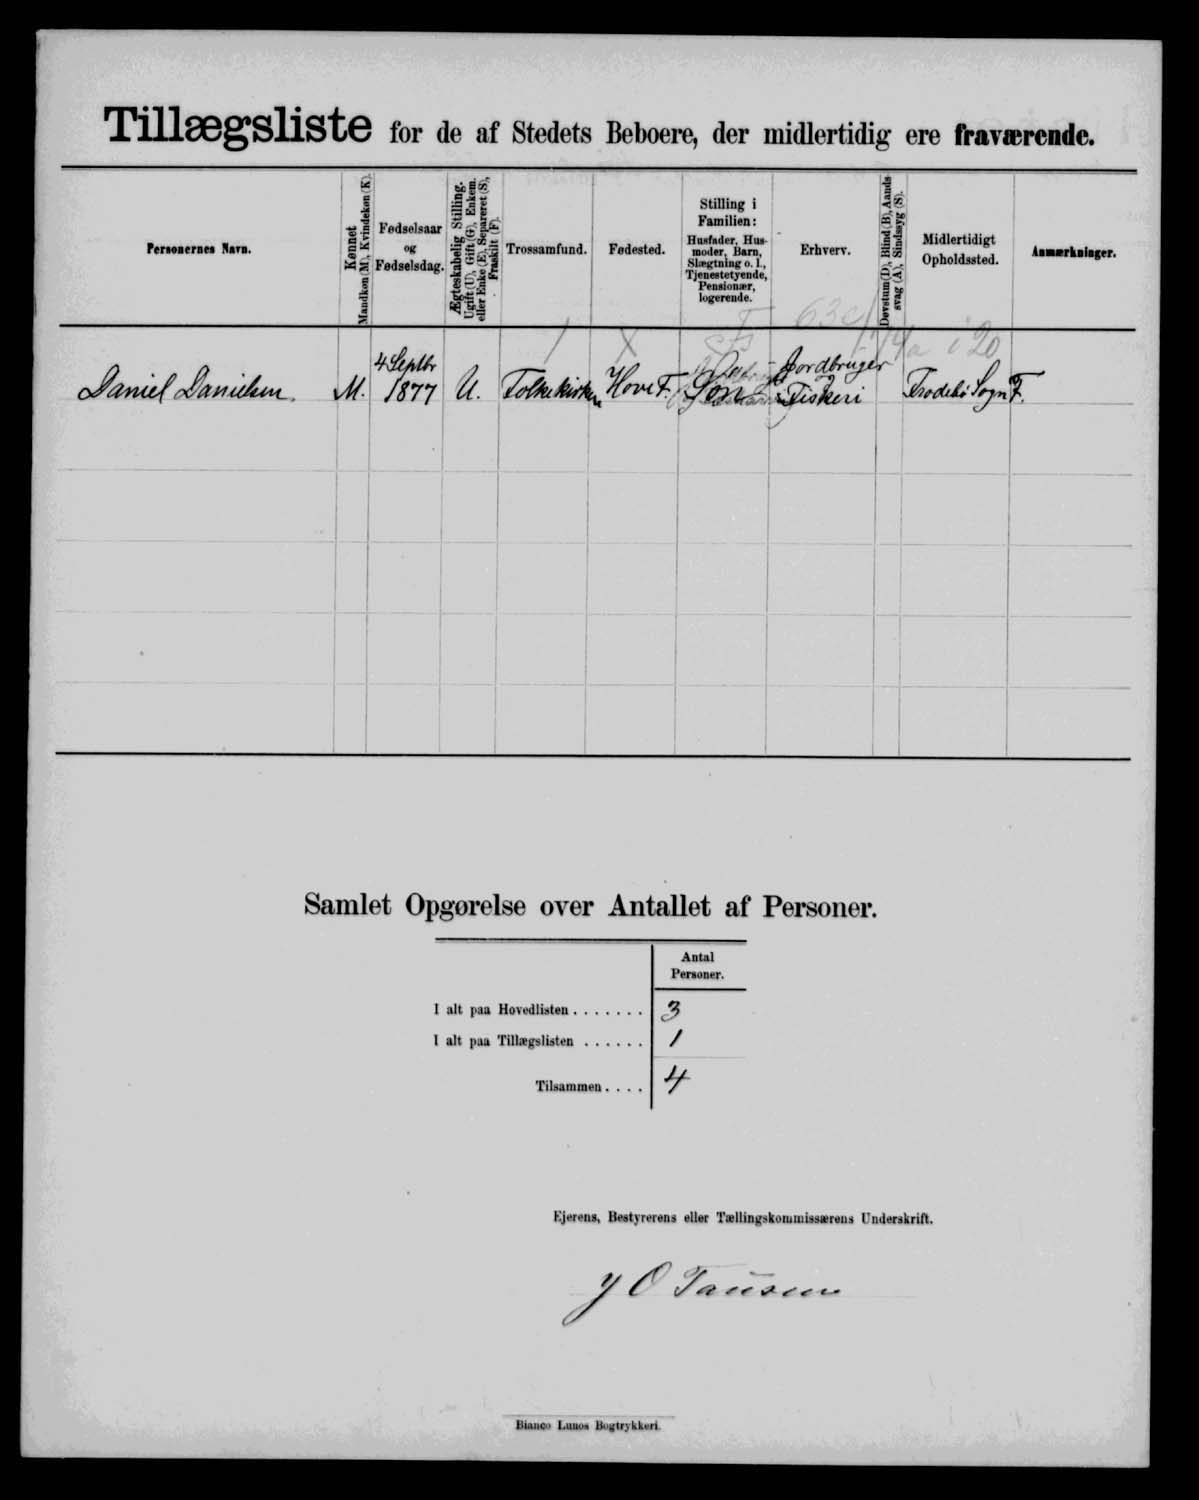 Tillægsliste for de af Stedets Beboere, der midlertidig ere fraværende.
Personernes Navn.
Kønnet
Mandkøn (M), Kvindekøn (K).
Fødselsaar
og
Fødselsdag.
Ægteskabelig Stilling.
Ugift (U), Gift (G), Enkem.
eller Enke (E), Separeret (S),
Fraskilt (F).
Trossamfund.
Fødested.
Stilling i
Familien:
Husfader, Hus-
moder, Barn,
Slægtning o. l.,
Tjenestetyende,
Pensionær,
logerende.
Erhverv.
Døvstum (D), Blind (B), Aands-
svag (A), Sindssyg (S).
Midlertidigt
Opholdssted.
Anmærkninger.
Daniel Danielsen.
M.
4 Septbr
1877
U.
Folkekirken
Hove F.
Søn
Jordbruger
Fiskeri
Frodebö Sogn F.
Samlet Opgørelse over Antallet af Personer.
Antal
Personer.
I alt paa Hovedlisten . . . . . . . 3
I alt paa Tillægslisten . . . . . . 1
Tilsammen . . . . 4
Ejerens, Bestyrerens eller Tællingskommissærens Underskrift.
Bianco Lunos Bogtrykkeri.